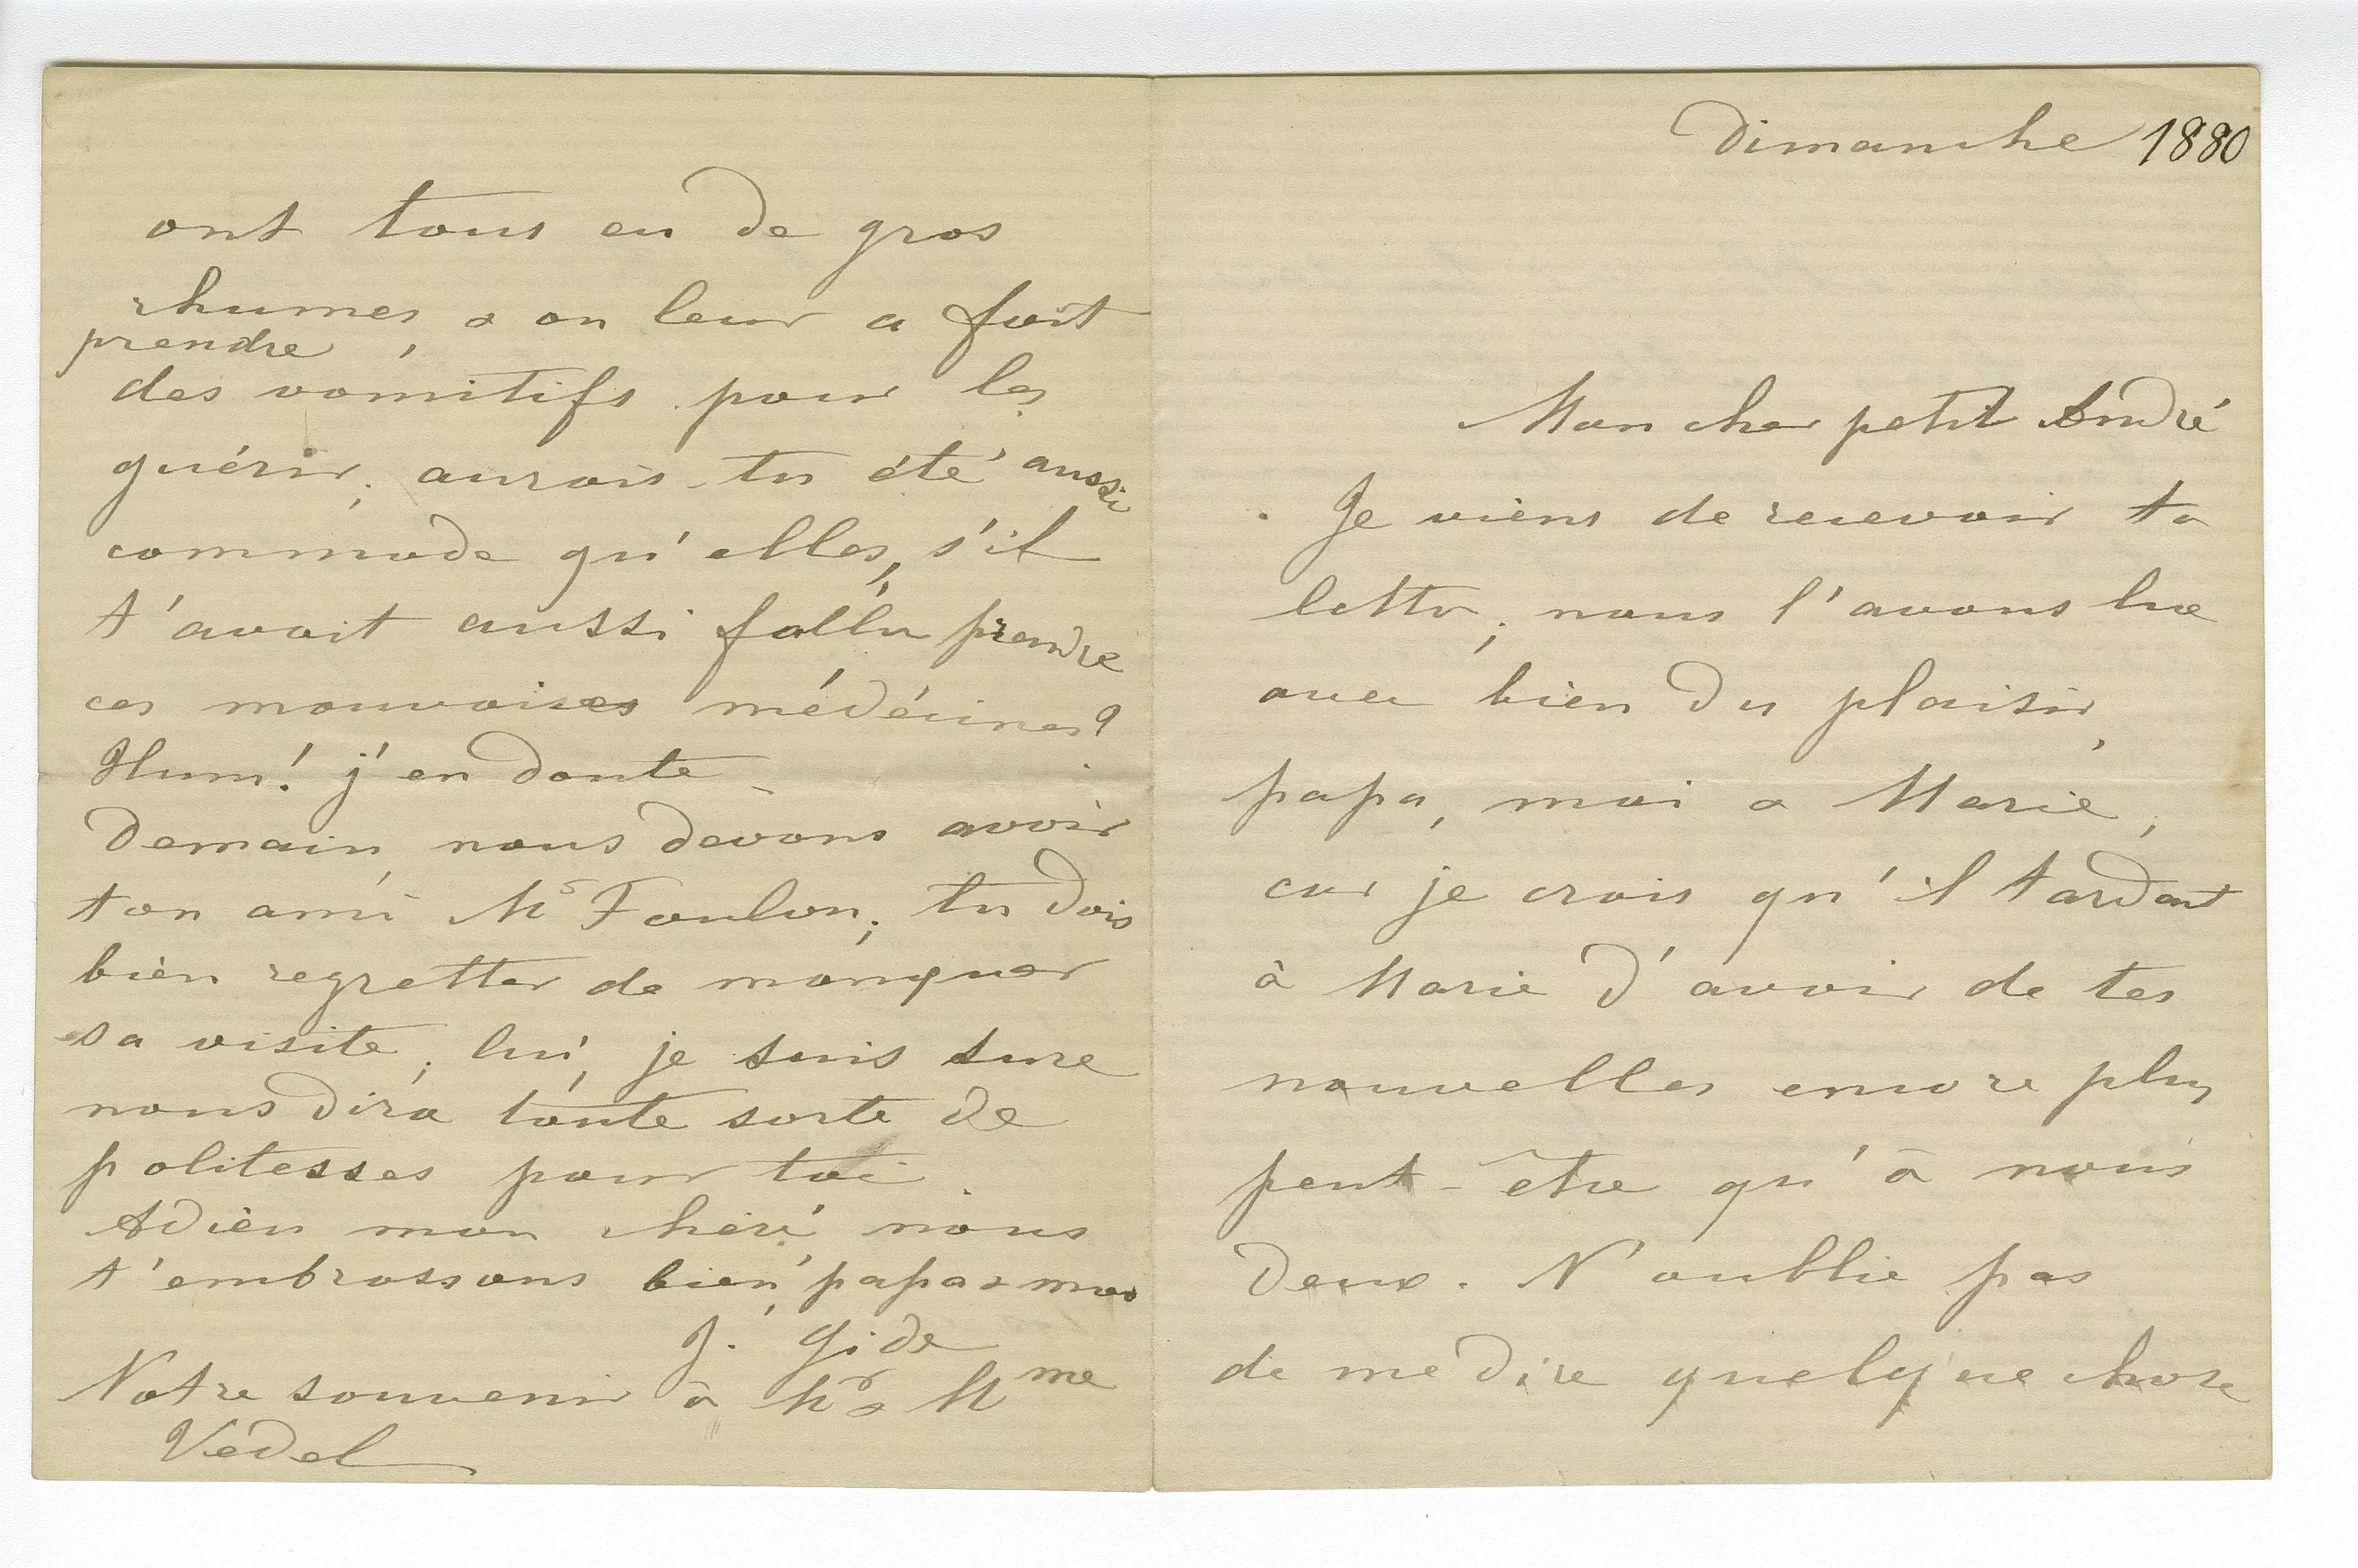 Dimanche 1880
Mon cher petit André
Je viens de recevoir ta
lettre ; nous l'avons lue
avec bien du plaisir,
papa, moi & Marie,
car je crois qu'il tardait
à Marie d'avoir de tes
nouvelles encore plus
peut-être qu'à nous
deux. N'oublie pas
de me dire quelque chose
ont tous eu de gros
rhumes, & on leur a fait
prendre
des vomitifs pour les
guérir ; aurais-tu été aussi
commode qu'elles, s'il
t'avait aussi fallu prendre
ces mauvaises médécines?
Hum! j'en doute
Demain, nous devons avoir
ton ami Mr Foulon ; tu dois
bien regretter de manquer
sa visite ; lui, je suis sure
nous dira toute sorte de
politesses pour toi.
Adieu mon chéri, nous
t'embrassons bien, papa & moi
J. Gide
Notre souvenir à Mr & Mme
Vedel